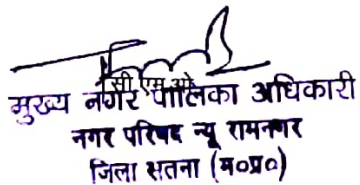 सी एम ओ
मुख्य नगर पालिका अधिकारी
नगर परिषद न्यू रामनगर
जिला सतना (म०प्र०)